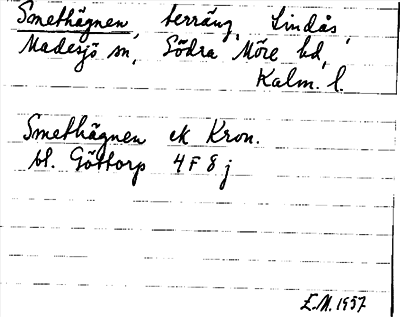 Smethägnen, terräng, Lindås,
Madesjö sn, Södra Möre hd,
Kalm. l.
Smethägnen ek Kron.
bl. Göttorp 4 F 8 j
E.M. 1957